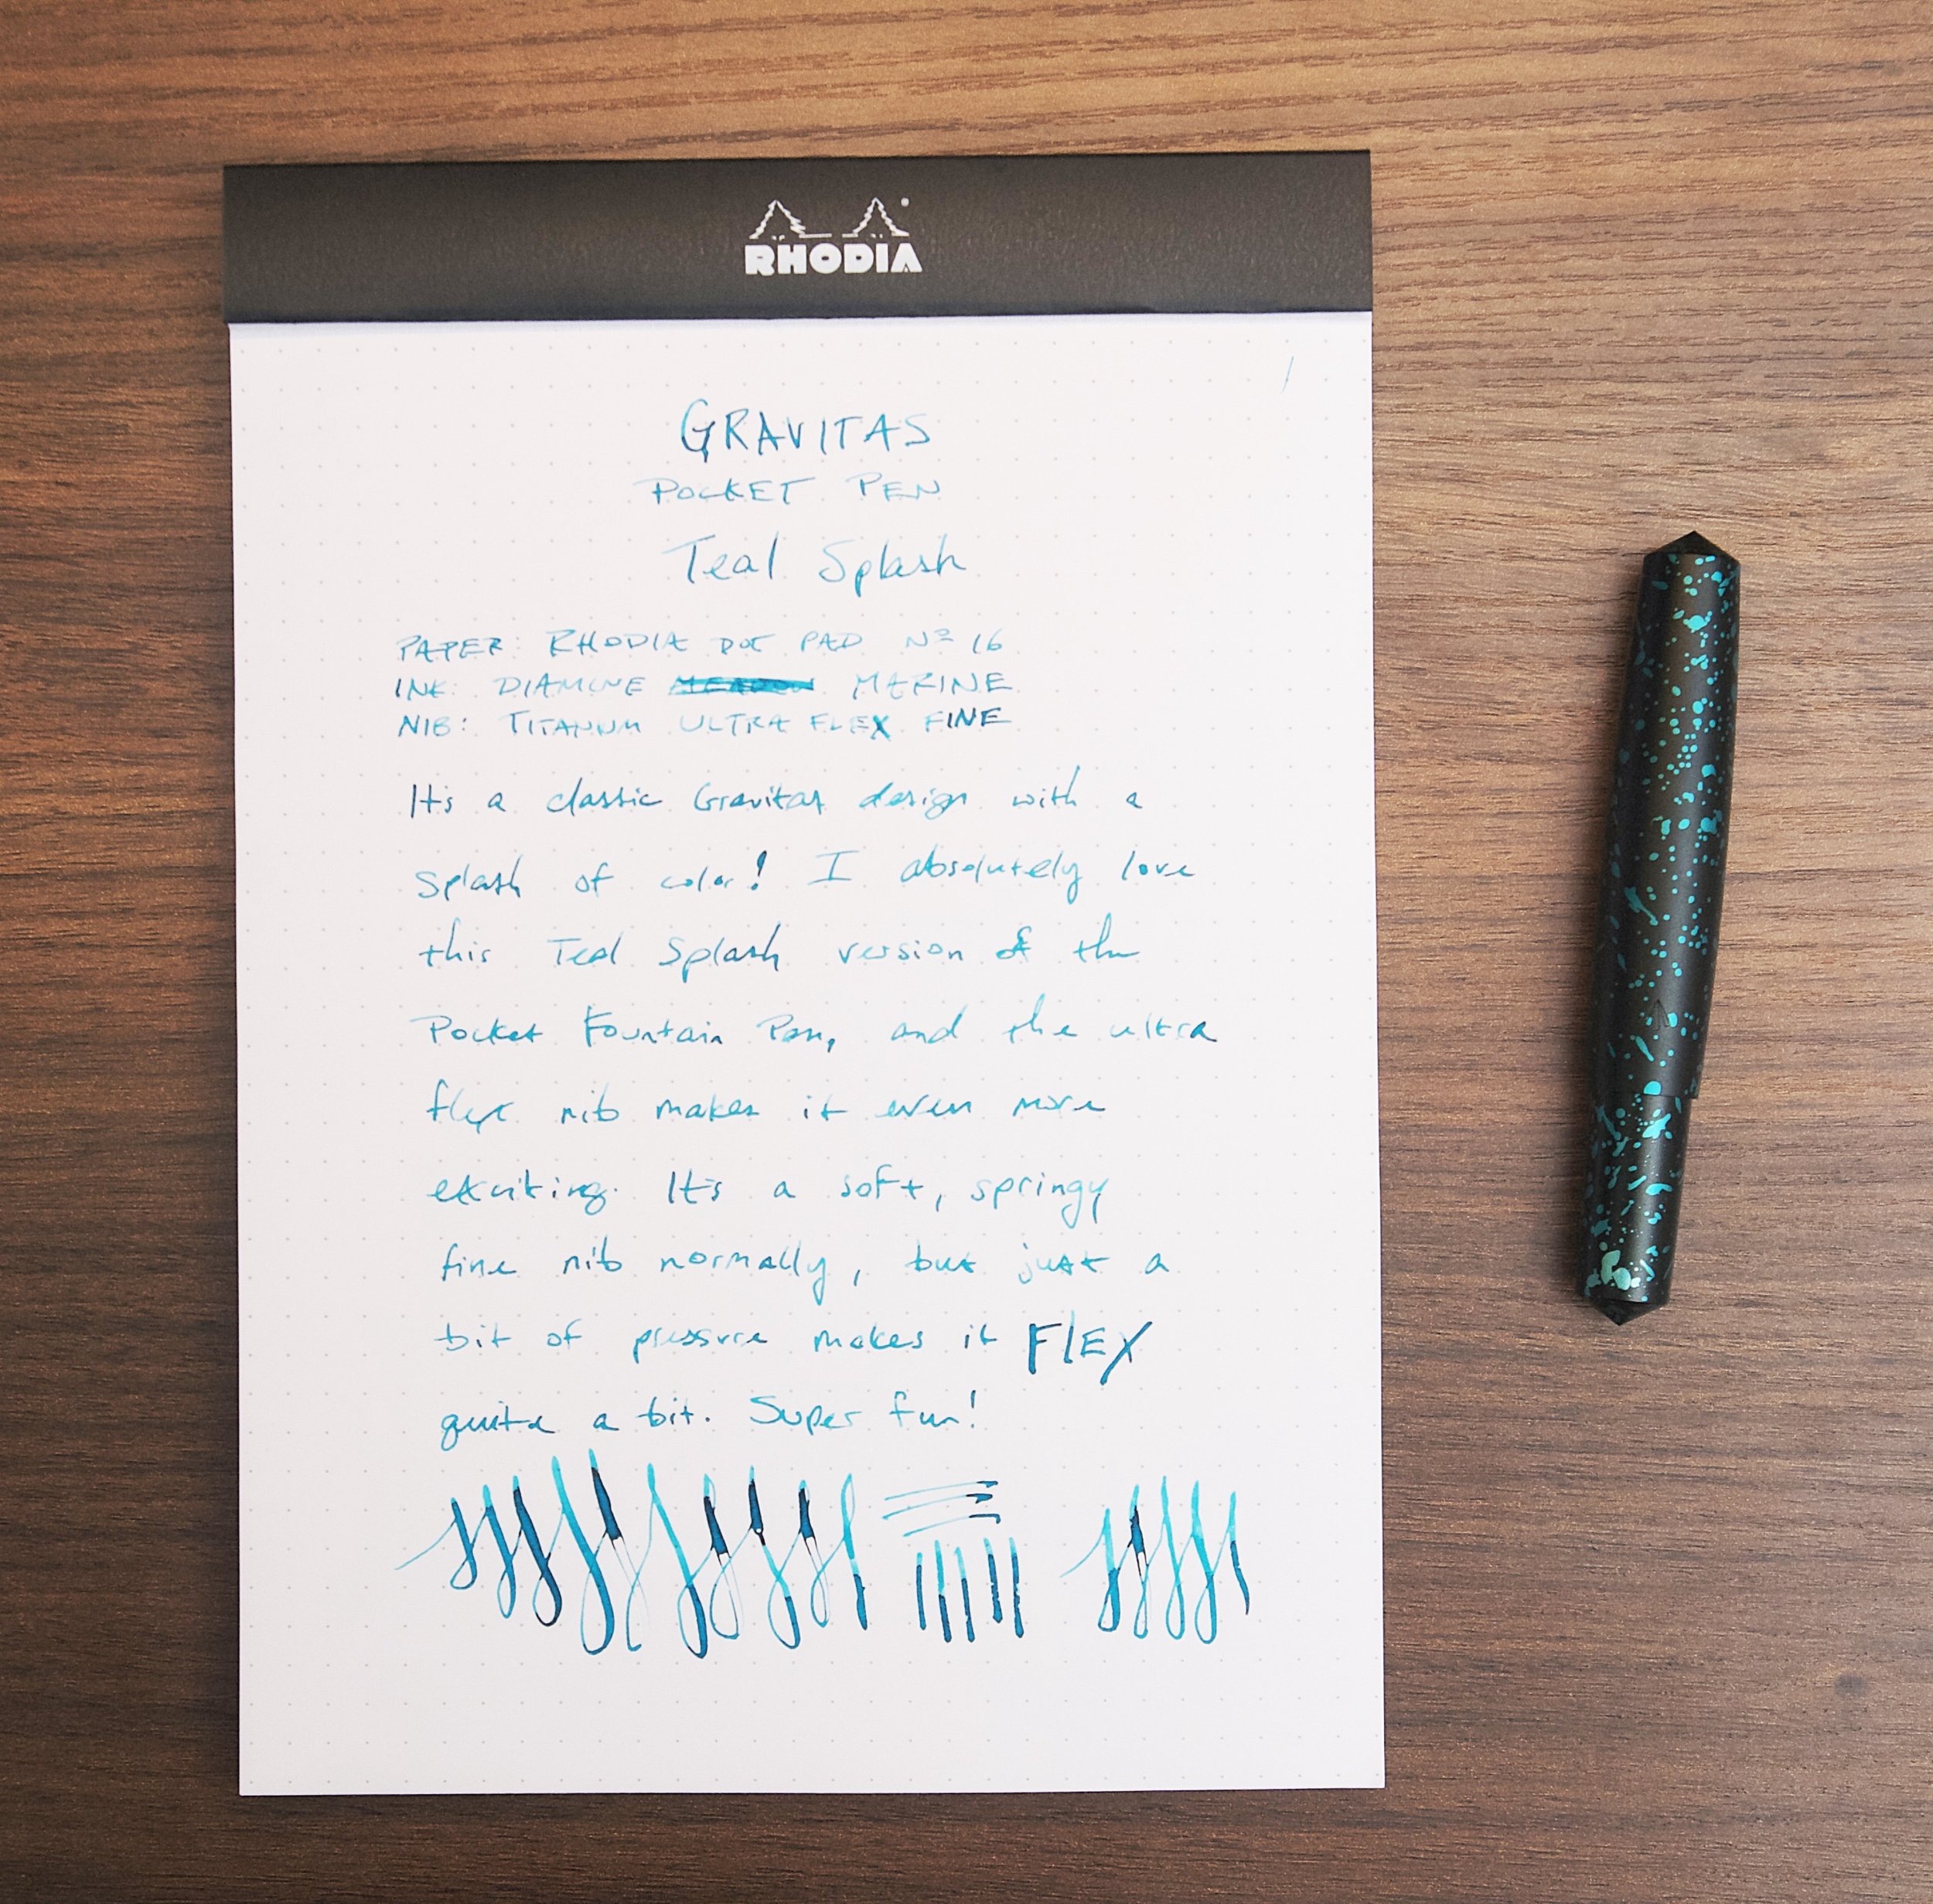 RHODIA
GRAVITAS
POCKET PEN
Teal Splash
PAPER: RHODIA DOT PAD Nº 16
INK: DIAMINE MARINE
NIB: TITANUM ULTRA FLEX FINE
It's a classic Gravitas design with a
splash of color! I absolutely love
this Teal Splash version of the
Pocket Fountain Pen, and the ultra
flex nib makes it even more
exciting. It's a soft, springy
fine nib normally, but just a
bit of pressure makes it FLEX
quite a bit. Super fun!